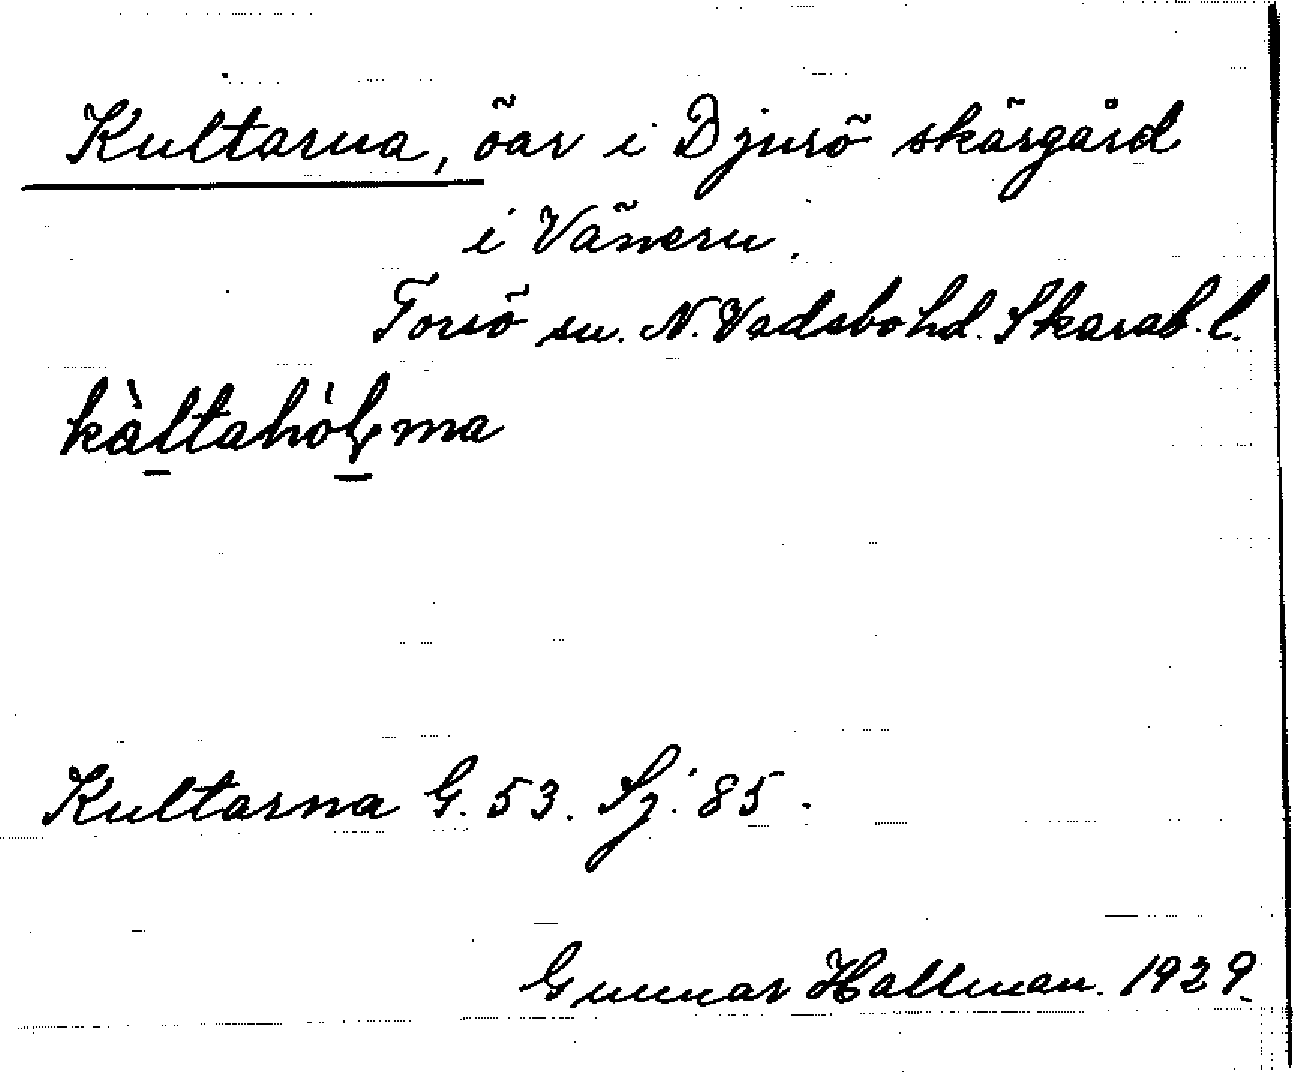 Kultarna, öar i Djurö skärgård
i Vänern.
Torsö sn. N. Vadsbo hd. Skarab. l.
kàltahòlma
Kultarna G. 53. Sj. 85.
Gunnar Hallman. 1929.